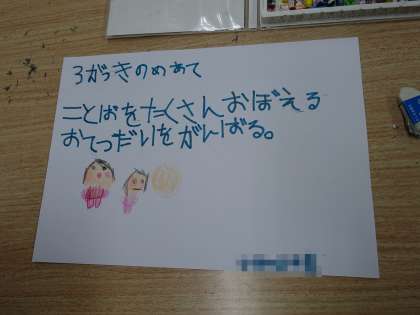 3がっきのめあて
ことばをたくさんおぼえる
おてつだいをがんばる。